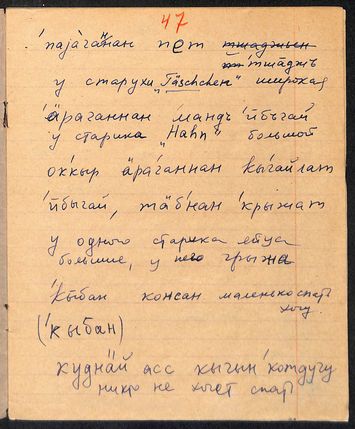 47
'паjáган̄нан пет тшаджын
тшáджъ
у старухи "Täschchen" широкая
'äраганнан мандъ 'йбыгай
у старика "Hahn" большой
оккыр äрáганнан кы́гайлат
'йбыгай, тäб'нан 'крыжат
у одного старика яйца
большие, у него грыжа
'кыбан консан маленько спать
хочу
('кыбан)
куднäй асс кыгын 'котдугу
никто не хочет спать